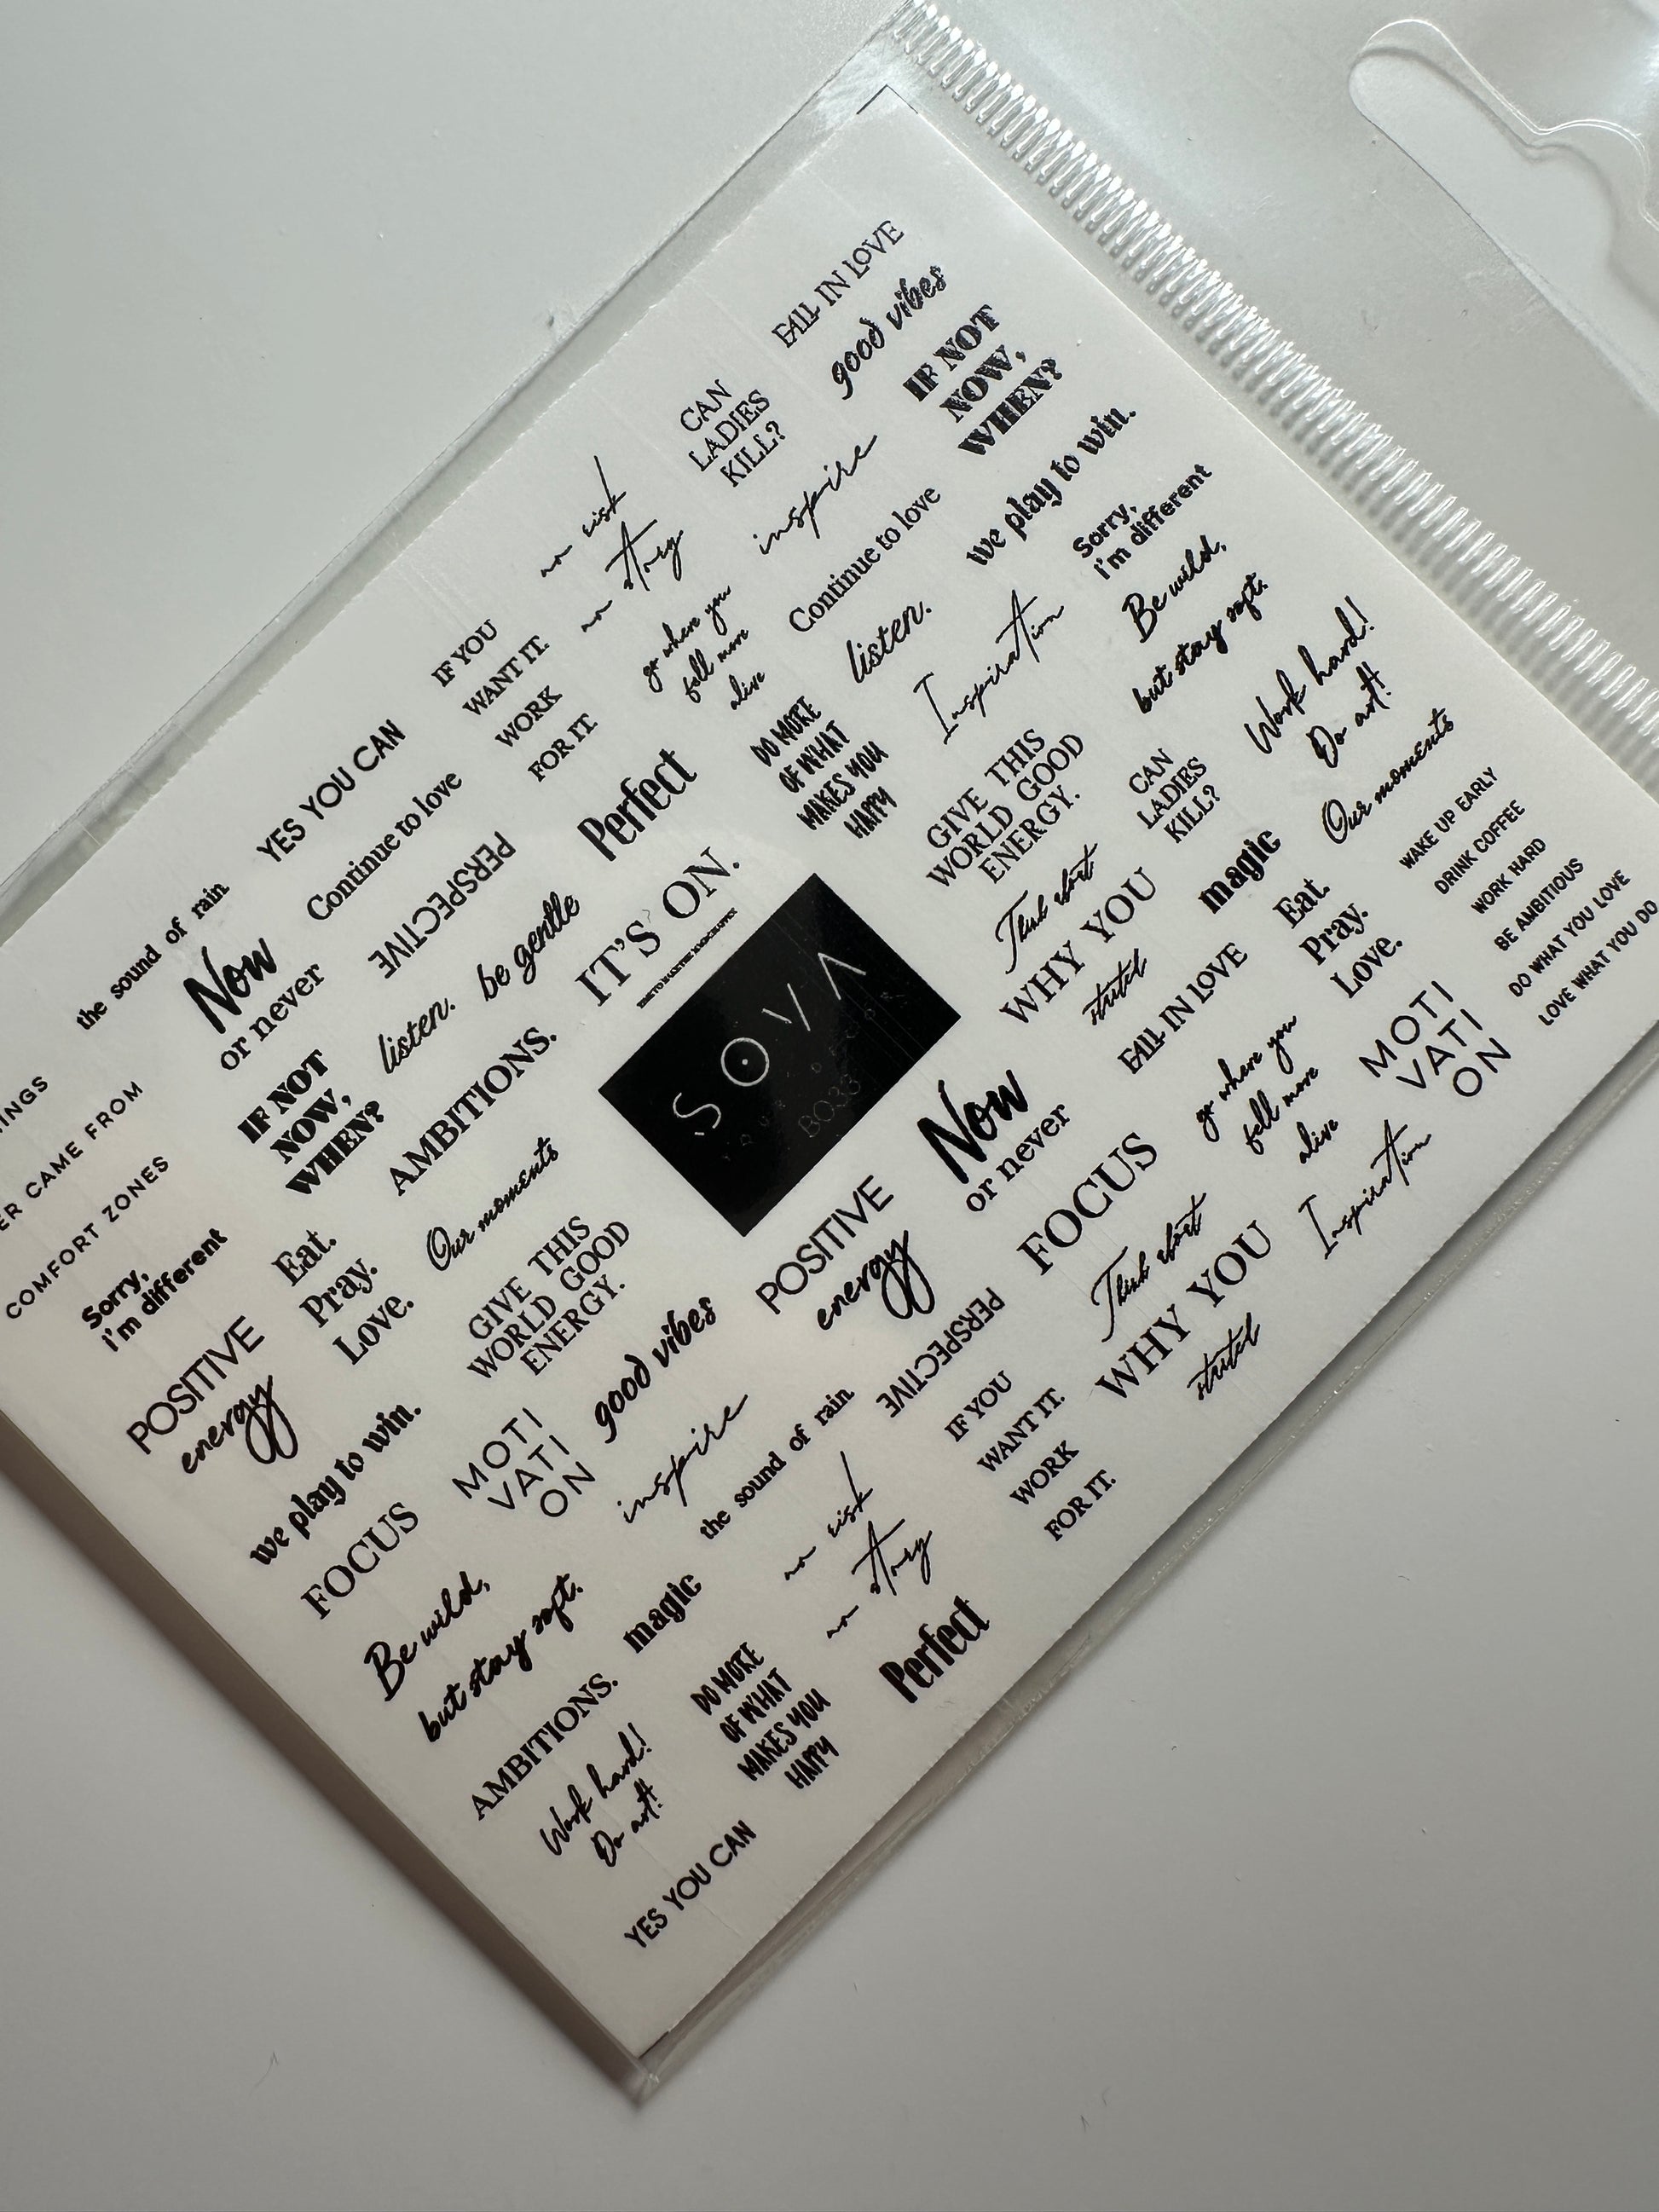 FALL IN LOVE
good vibes
IF NOT
NOW,
WHEN?
we play to win.
Sorry,
i'm different
Be wild,
but stay soft.
Work hard!
Do art!
Our moments
WAKE UP EARLY
DRINK COFFEE
WORK HARD
BE AMBITIOUS
DO WHAT YOU LOVE
LOVE WHAT YOU DO
CAN
LADIES
KILL?
inspire
Continue to love
listen.
Inspiration
GIVE THIS
WORLD GOOD
ENERGY.
CAN
LADIES
KILL?
magic
Eat.
Pray.
Love.
MOTI
VATI
ON
no risk
no story
go where you
fell more
alive
DO MORE
OF WHAT
MAKES YOU
HAPPY
Think about
WHY YOU
started
FALL IN LOVE
go where you
fell more
alive
Inspiration
IF YOU
WANT IT.
WORK
FOR IT.
Perfect
IT'S ON.
SOVA
B033
Now
or never
FOCUS
Think about
WHY YOU
started
YES YOU CAN
Continue to love
PERSPECTIVE
be gentle
POSITIVE
energy
PERSPECTIVE
IF YOU
WANT IT.
WORK
FOR IT.
the sound of rain
Now
or never
listen.
AMBITIONS.
Our moments
GIVE THIS
WORLD GOOD
ENERGY.
good vibes
inspire
the sound of rain
no risk
no story
Perfect
IF NOT
NOW,
WHEN?
Eat.
Pray.
Love.
MOTI
VATI
ON
magic
DO MORE
OF WHAT
MAKES YOU
HAPPY
CAME FROM
COMFORT ZONES
Sorry,
i'm different
POSITIVE
energy
we play to win.
FOCUS
Be wild,
but stay soft.
AMBITIONS.
Work hard!
Do art!
YES YOU CAN